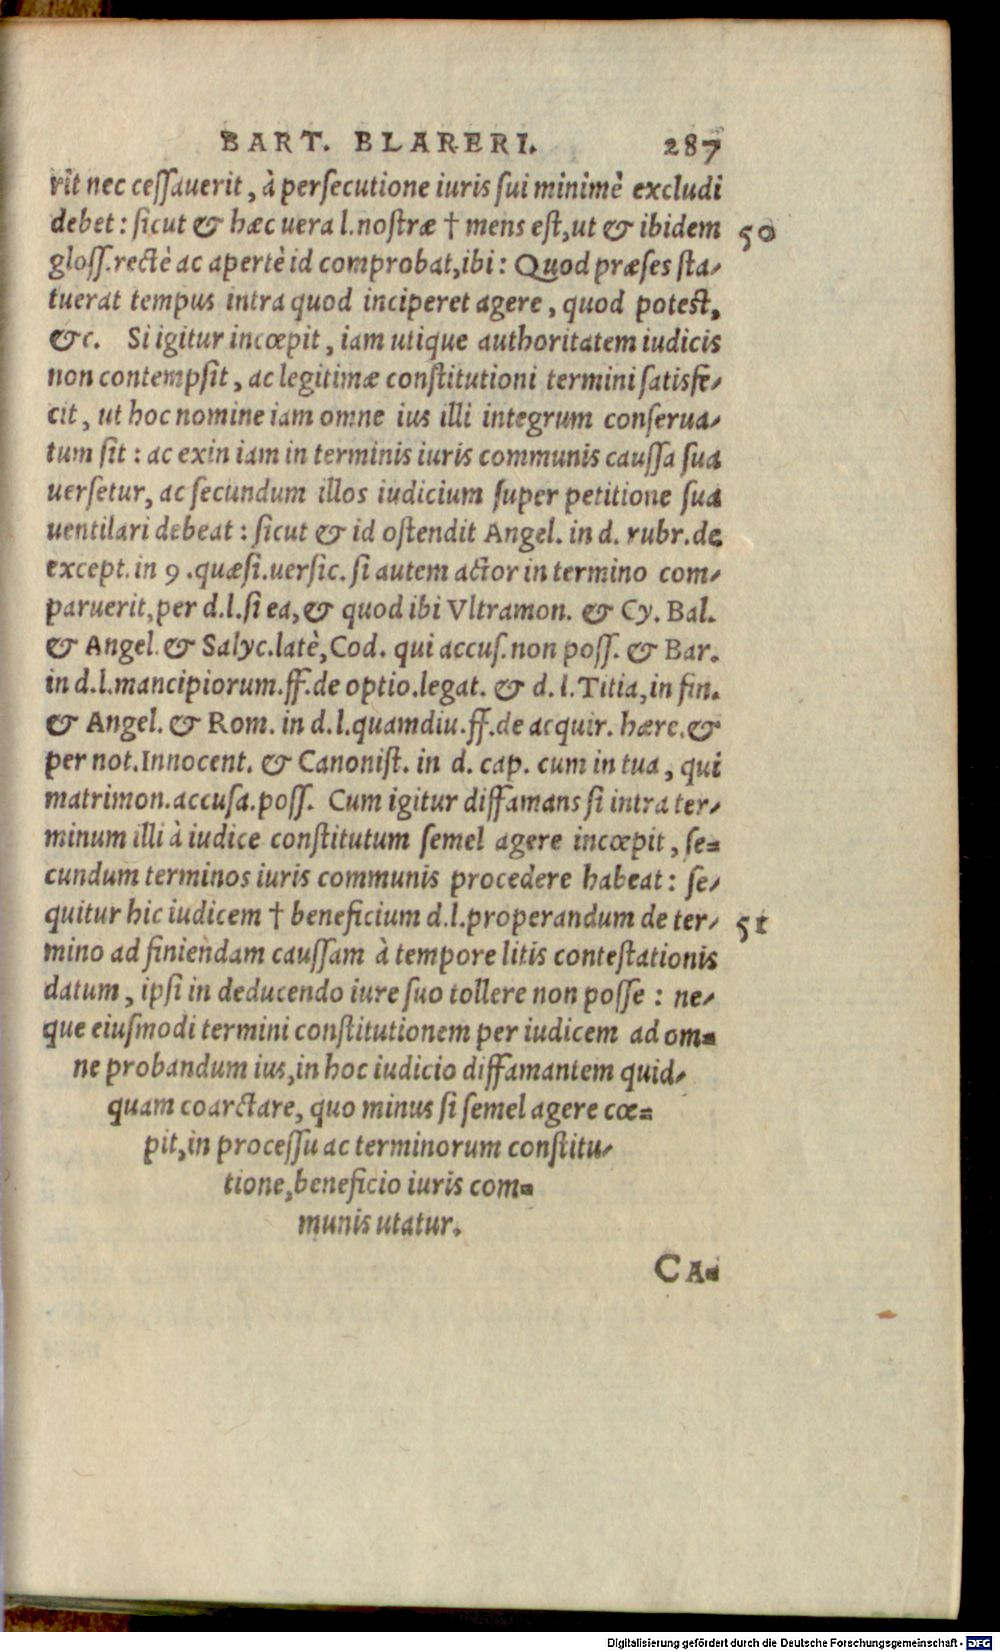 BART. BLARERI. 287
rit nec cessauerit, à persecutione iuris sui minimè excludi
debet: sicut & hæc uera l. nostræ † mens est, ut & ibidem 50
gloss. rectè ac apertè id comprobat, ibi: Quod præses sta-
tuerat tempus intra quod inciperet agere, quod potest,
&c. Si igitur incœpit, iam utique authoritatem iudicis
non contempsit, ac legitimæ constitutioni termini satisfe-
cit, ut hoc nomine iam omne ius illi integrum conserua-
tum sit: ac exin iam in terminis iuris communis caussa sua
uersetur, ac secundum illos iudicium super petitione sua
uentilari debeat: sicut & id ostendit Angel. in d. rubr. de
except. in 9. quæsi. uersic. si autem actor in termino com-
paruerit, per d. l. si ea, & quod ibi Vltramon. & Cy. Bal.
& Angel. & Salyc. latè, Cod. qui accus. non poss. & Bar.
in d. l. mancipiorum. ff. de optio. legat. & d. l. Titia, in fin.
& Angel. & Rom. in d. l. quamdiu. ff. de acquir. hære. &
per not. Innocent. & Canonist. in d. cap. cum in tua, qui
matrimon. accusa. poss. Cum igitur diffamans si intra ter-
minum illi à iudice constitutum semel agere incœpit, se-
cundum terminos iuris communis procedere habeat: se-
quitur hic iudicem † beneficium d. l. properandum de ter- 51
mino ad finiendam caussam à tempore litis contestationis
datum, ipsi in deducendo iure suo tollere non posse: ne-
que eiusmodi termini constitutionem per iudicem ad om-
ne probandum ius, in hoc iudicio diffamantem quid-
quam coarctare, quo minus si semel agere cœ-
pit, in processu ac terminorum constitu-
tione, beneficio iuris com-
munis utatur.
CA-
Digitalisierung gefördert durch die Deutsche Forschungsgemeinschaft - DFG